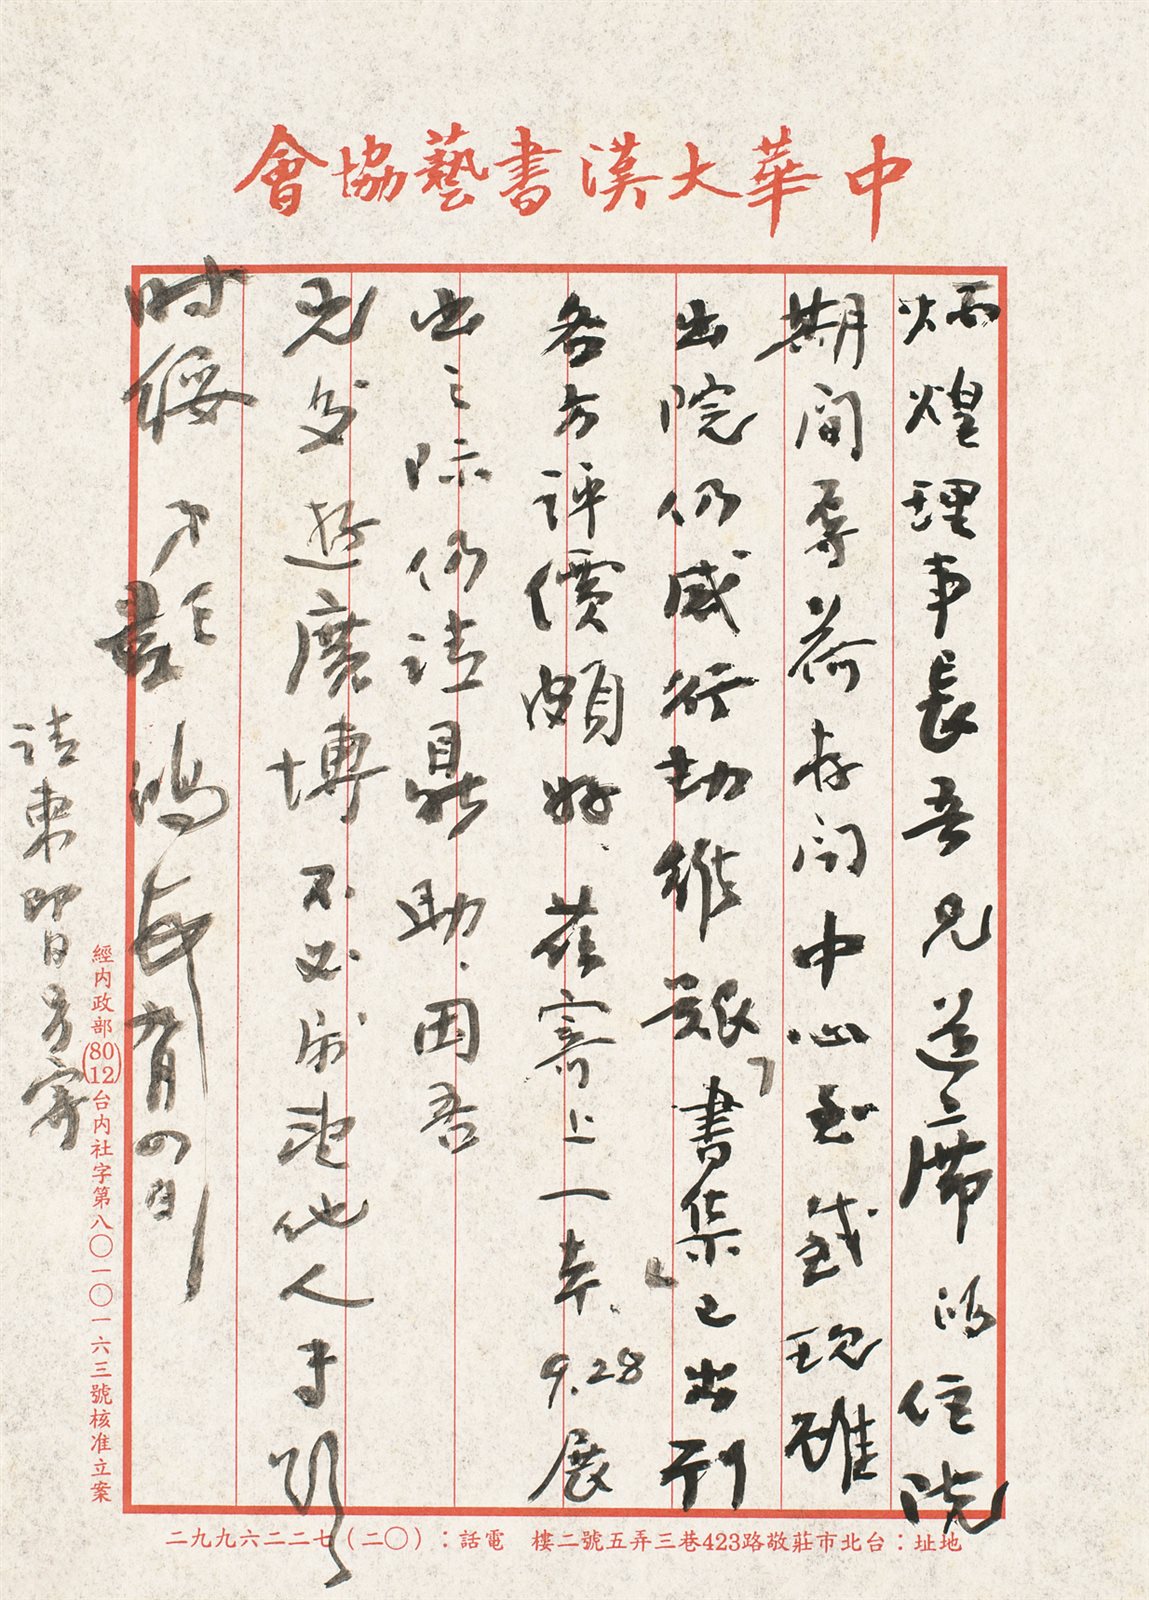 中華大漢書藝協會
炳煌理事長吾兄道席鴻住院
期間辱荷存問中心至感現雖
出院仍感行動維艱「書集」已出刊
各方評價頗好茲寄上一本9.28展
出之際仍請鼎助因吾
兄交遊廣博不必求他人專頌
時綏 弟
鴻 九月四日
請柬印日另寄
經內政部(80 12)台內社字第八〇一〇一六三號核准立案
地址：台北市莊敬路423巷三弄五號二樓 電話：(〇二)七二二六九九二